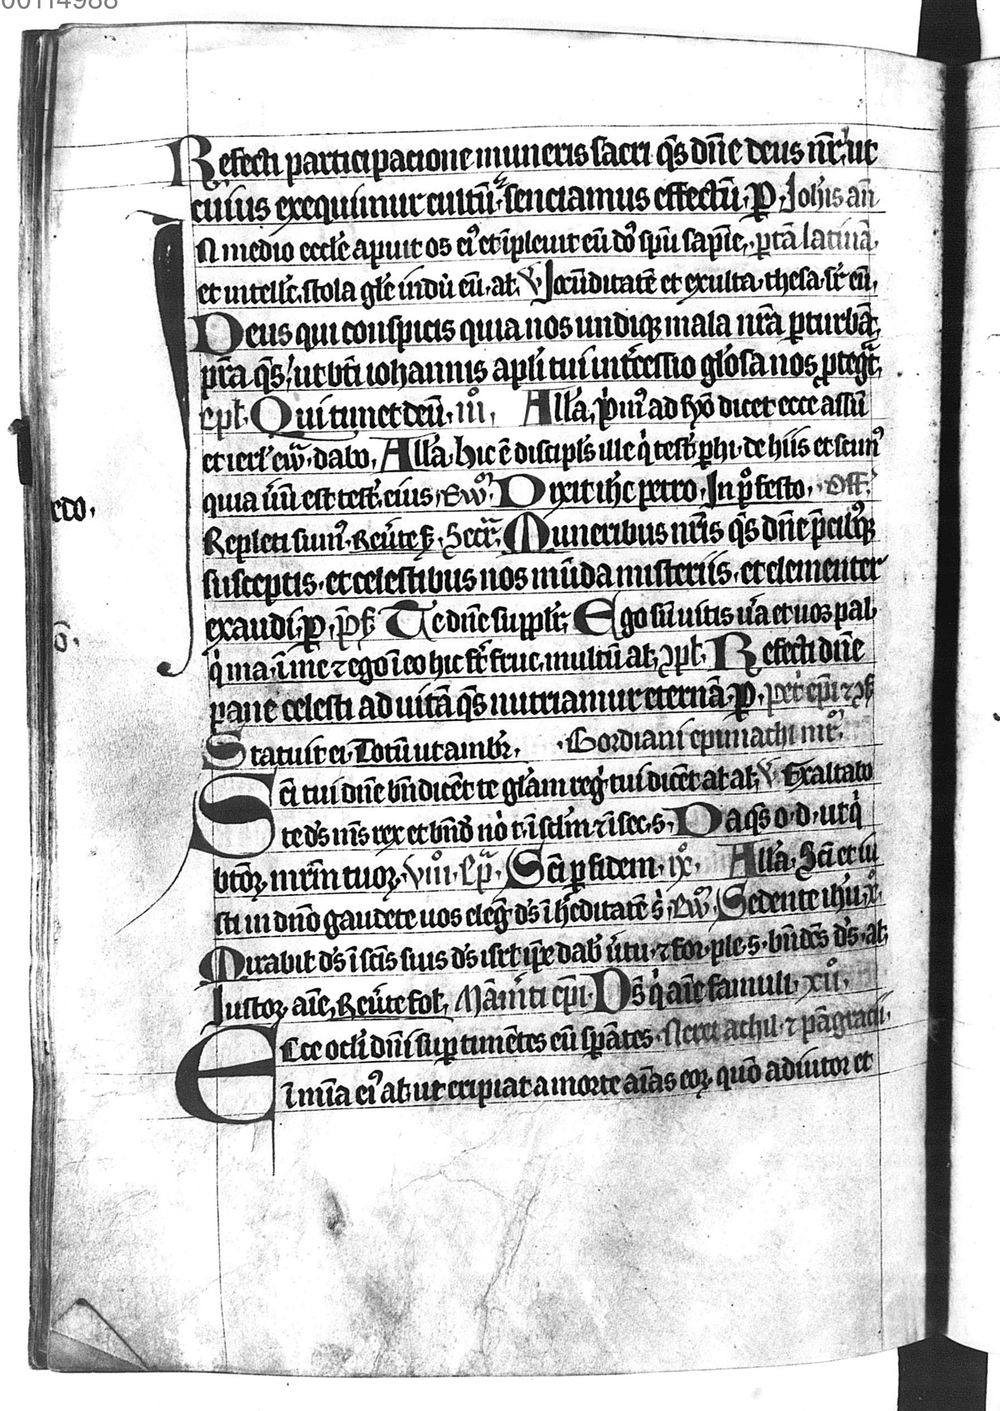 00114988
Refecti participacione muneris sacri q̄s dn̄e deus nr̄ ut
cuius exequimur cultū senciamus effectū. P. Joh̄is an̄
In medio eccl̄e apuit os ei⁹ et īpleuit eū dō spū sapīe, portā latinā,
et intell̄c, stola gl̄e induit eū, at, V Jocūditatē et exulta thesa sr̄ eū,
Deus qui conspicis quia nos undiqꝫ mala nrā pturbāt,
pr̄a q̄s, ut bt̄i iohannis apl̄i tui int̄cessio gl̄osa nos ptegat,
Epl. Qui timet deū, iii, All̄a, Prim⁹ ad syō dicet ecce assū
et ierl̄ ew̄ dabo, All̄a, hic ē discipl̄s ille q̄ test phi, de hiis et scim⁹
quia uū est test, eius, Ew̄ Dixit ih̄c petro, In p̄ festo, Off.
Repleti sum⁹. Re Secr̄ Muneribus nr̄is q̄s dn̄e p̄cibꝰqꝫ
susceptis, et celestibus nos mūda misteriis, et clementer
exaudi, P, Te dn̄e suppl̄r, Ego sū uitis ūa et uos pal
q̄ ma ī me ⁊ ego ī eo hic fr̄t fruc, multū at, Refecti dn̄e
pane celesti ad uitā q̄s nutriamur eternā, P,
Statuit ei, Totū ut Gordiani epimachi mr̄,
Sc̄i tui dn̄e bn̄dicēt te gl̄am reḡ tui dicēt at at, V Exaltabo
te d̄s m̄s rex et bn̄d nō t, ī sc̄lm ⁊ ī sec, s, Da q̄s o. d. ut q̄
bt̄oꝝ mr̄m tuoꝝ, viii, Ep̄, Sc̄i p fidem, ix, All̄a, Sc̄i et iu
sti in dn̄o gaudete uos eleḡ d̄s ī h̄editatē s̄, Ew̄, Sedente ihū, x,
Mirabit d̄s ī sc̄is suis d̄s isrl̄ ip̄e dab ūtu, ⁊ for, ple, s, bn̄dc̄s d̄s, at,
Iustoꝝ aīe, Re Mām̄ti ep̄i D̄s q̄ aīe famuli, xii,
Ecce oc̄li dn̄i sup timētes eū sp̄ātes, Nerei achil, ⁊ pāgracii,
ī mīa ei⁹ at ut eripiat a morte aīas eoꝝ quō adiutor et
edo,